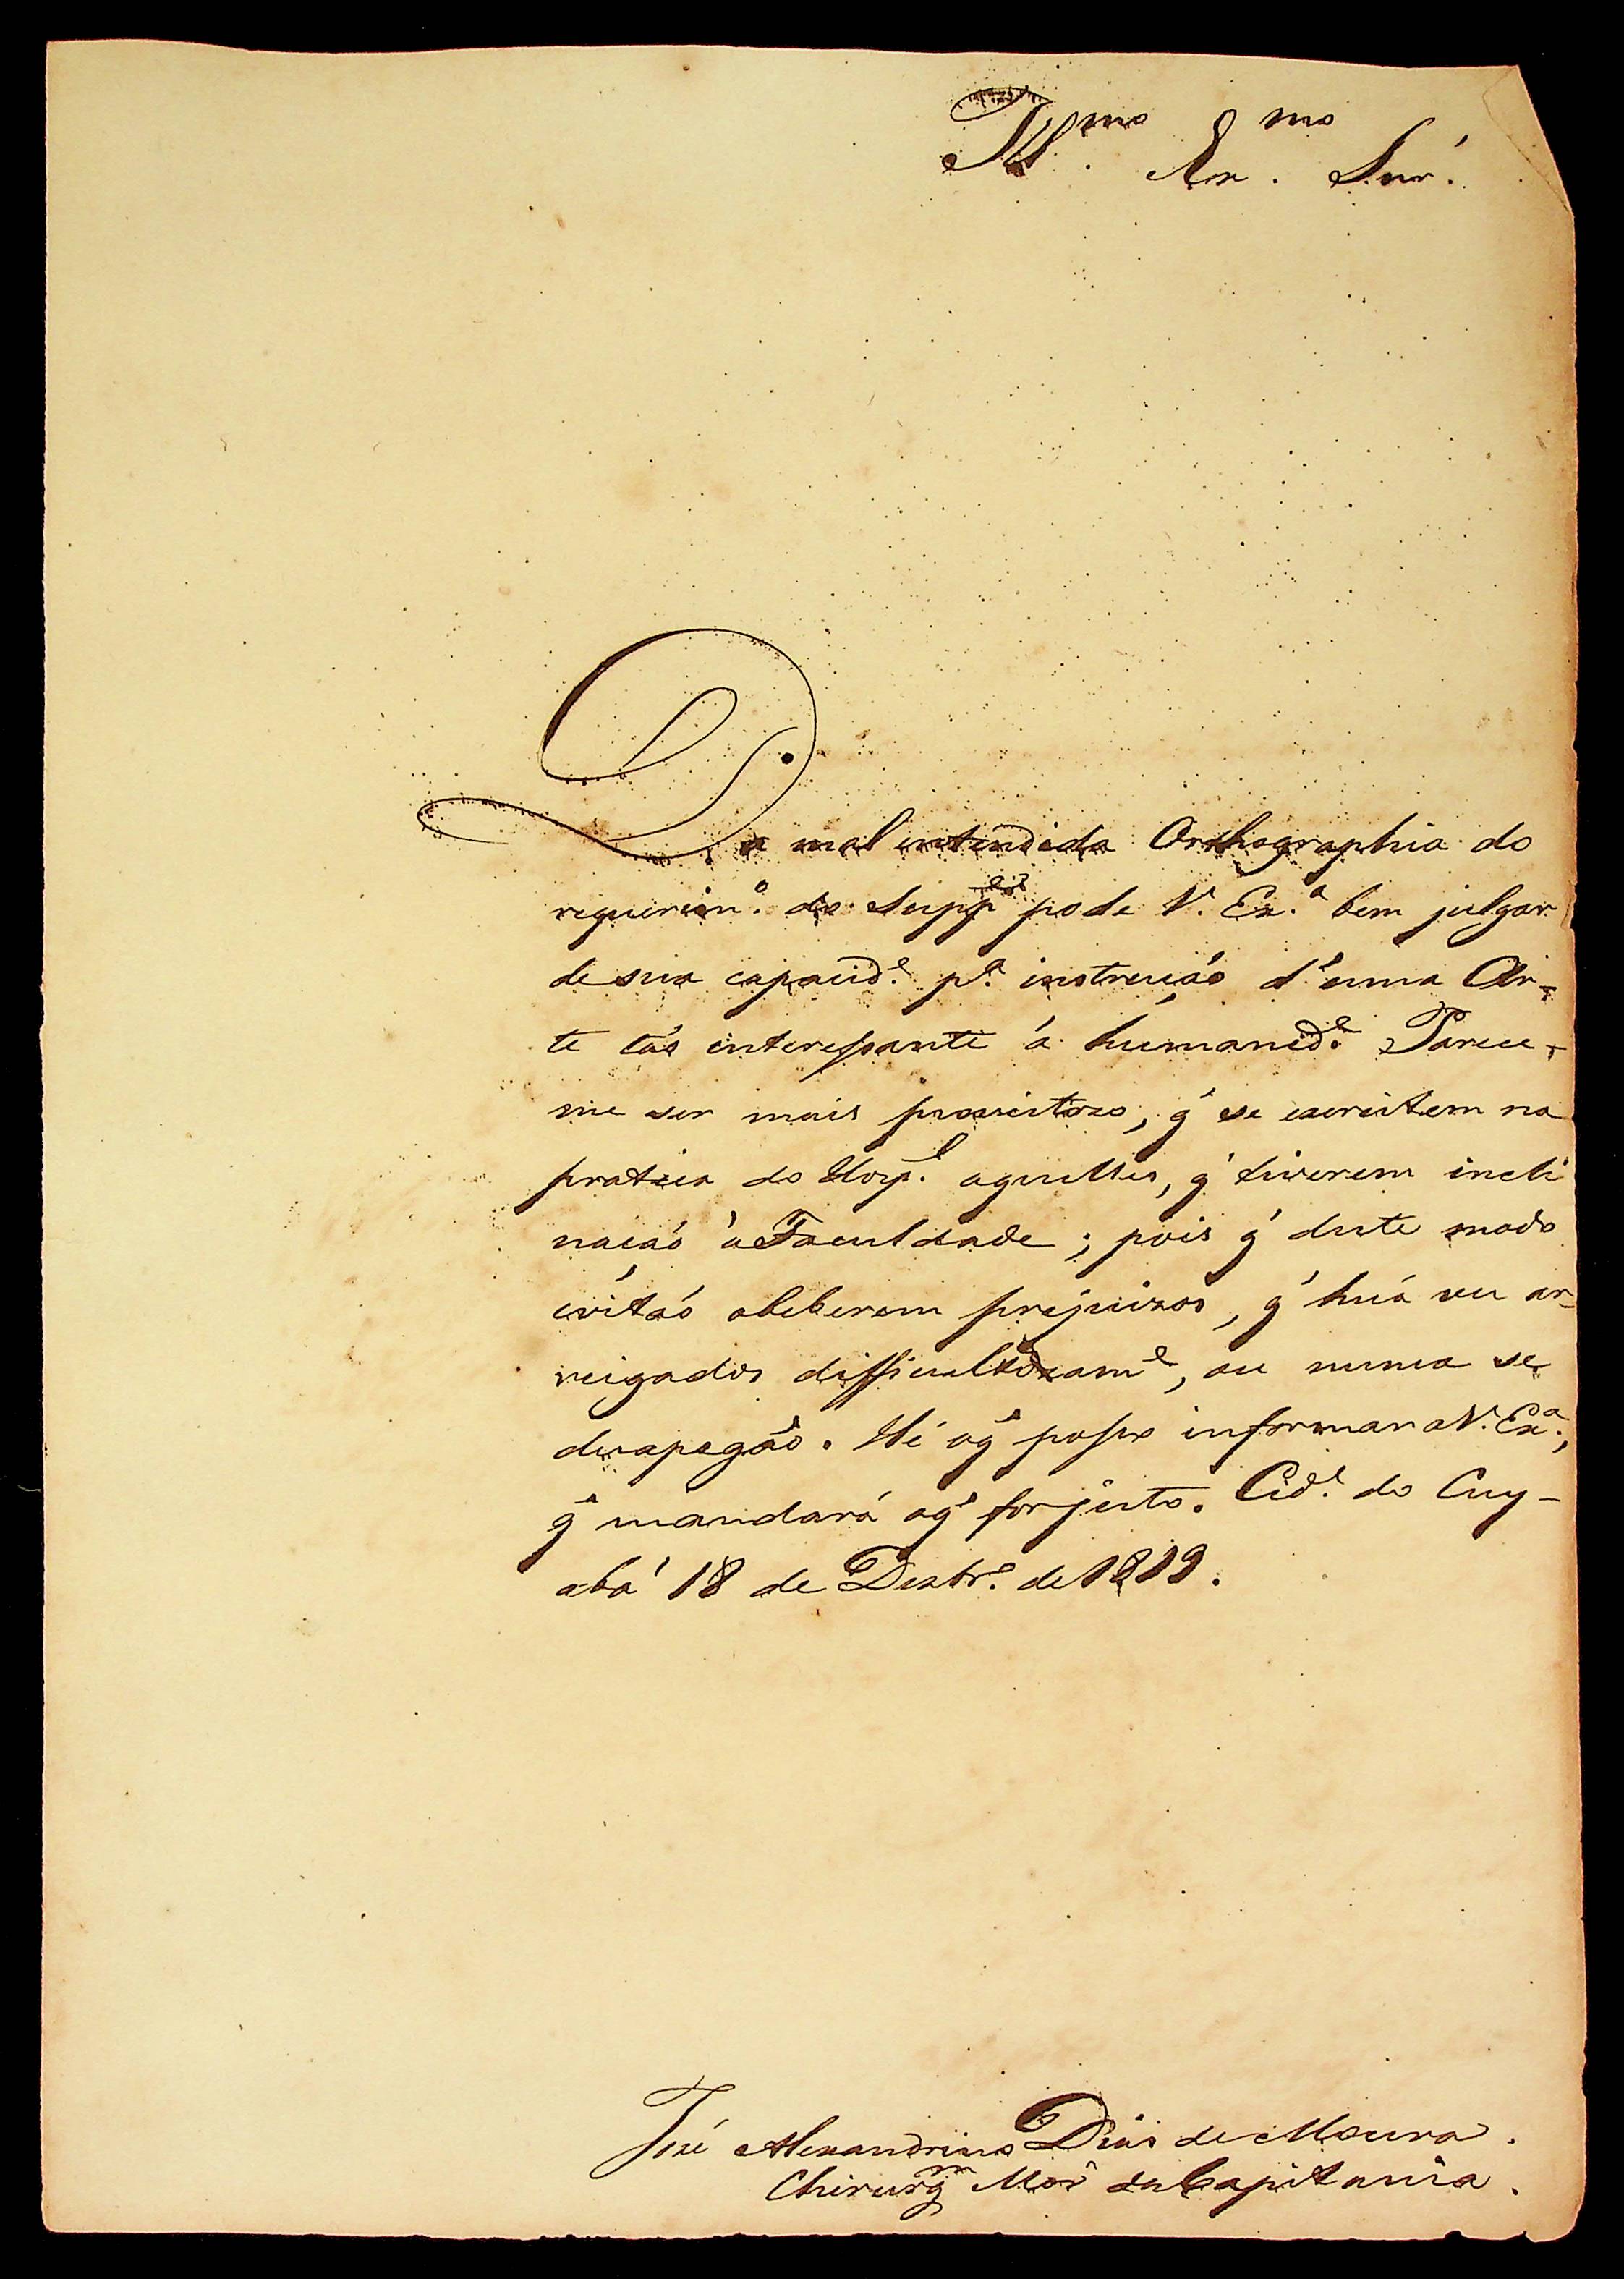 Ill.mo Ex.mo Snr.
Da mal entendida Orthographia do
requerim.o do Supp.e pode V. Ex.a bem julgar
de sua capacid.e p.a instrucaó d'uma Ar-
te táo interessante á humanid.e Parece-
me ser mais proveitozo, q̃ se exercitem na
pratica do Hosp.l aquelles, q̃ tiverem incli
nacaó á Faculdade; pois q̃ deste modo
evitaó obeberem prejuizos, q̃ huá vez ar-
reigados difficultozam.e, ou nunca se
desapegáo. Hé oq̃ posso informar a V. Ex.a;
q̃ mandará oq̃ for justo. Cid.e do Cuy-
abá 18 de Dezbr.o de 1819.
José Alexandrino Dias de Moura.
Chirurg.m Mór da Capitania.